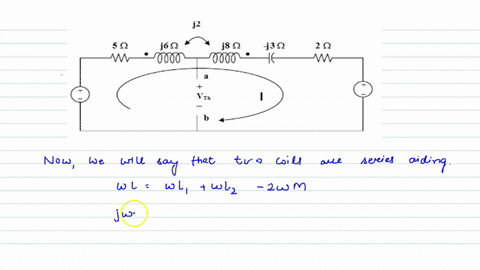 j2
5 Ω j6 Ω j8 Ω -j3 Ω 2 Ω
a
+
V_Th
I
−
b
Now, we will say that two coils are series aiding.
ωL = ωL₁ + ωL₂ - 2ωM
jω